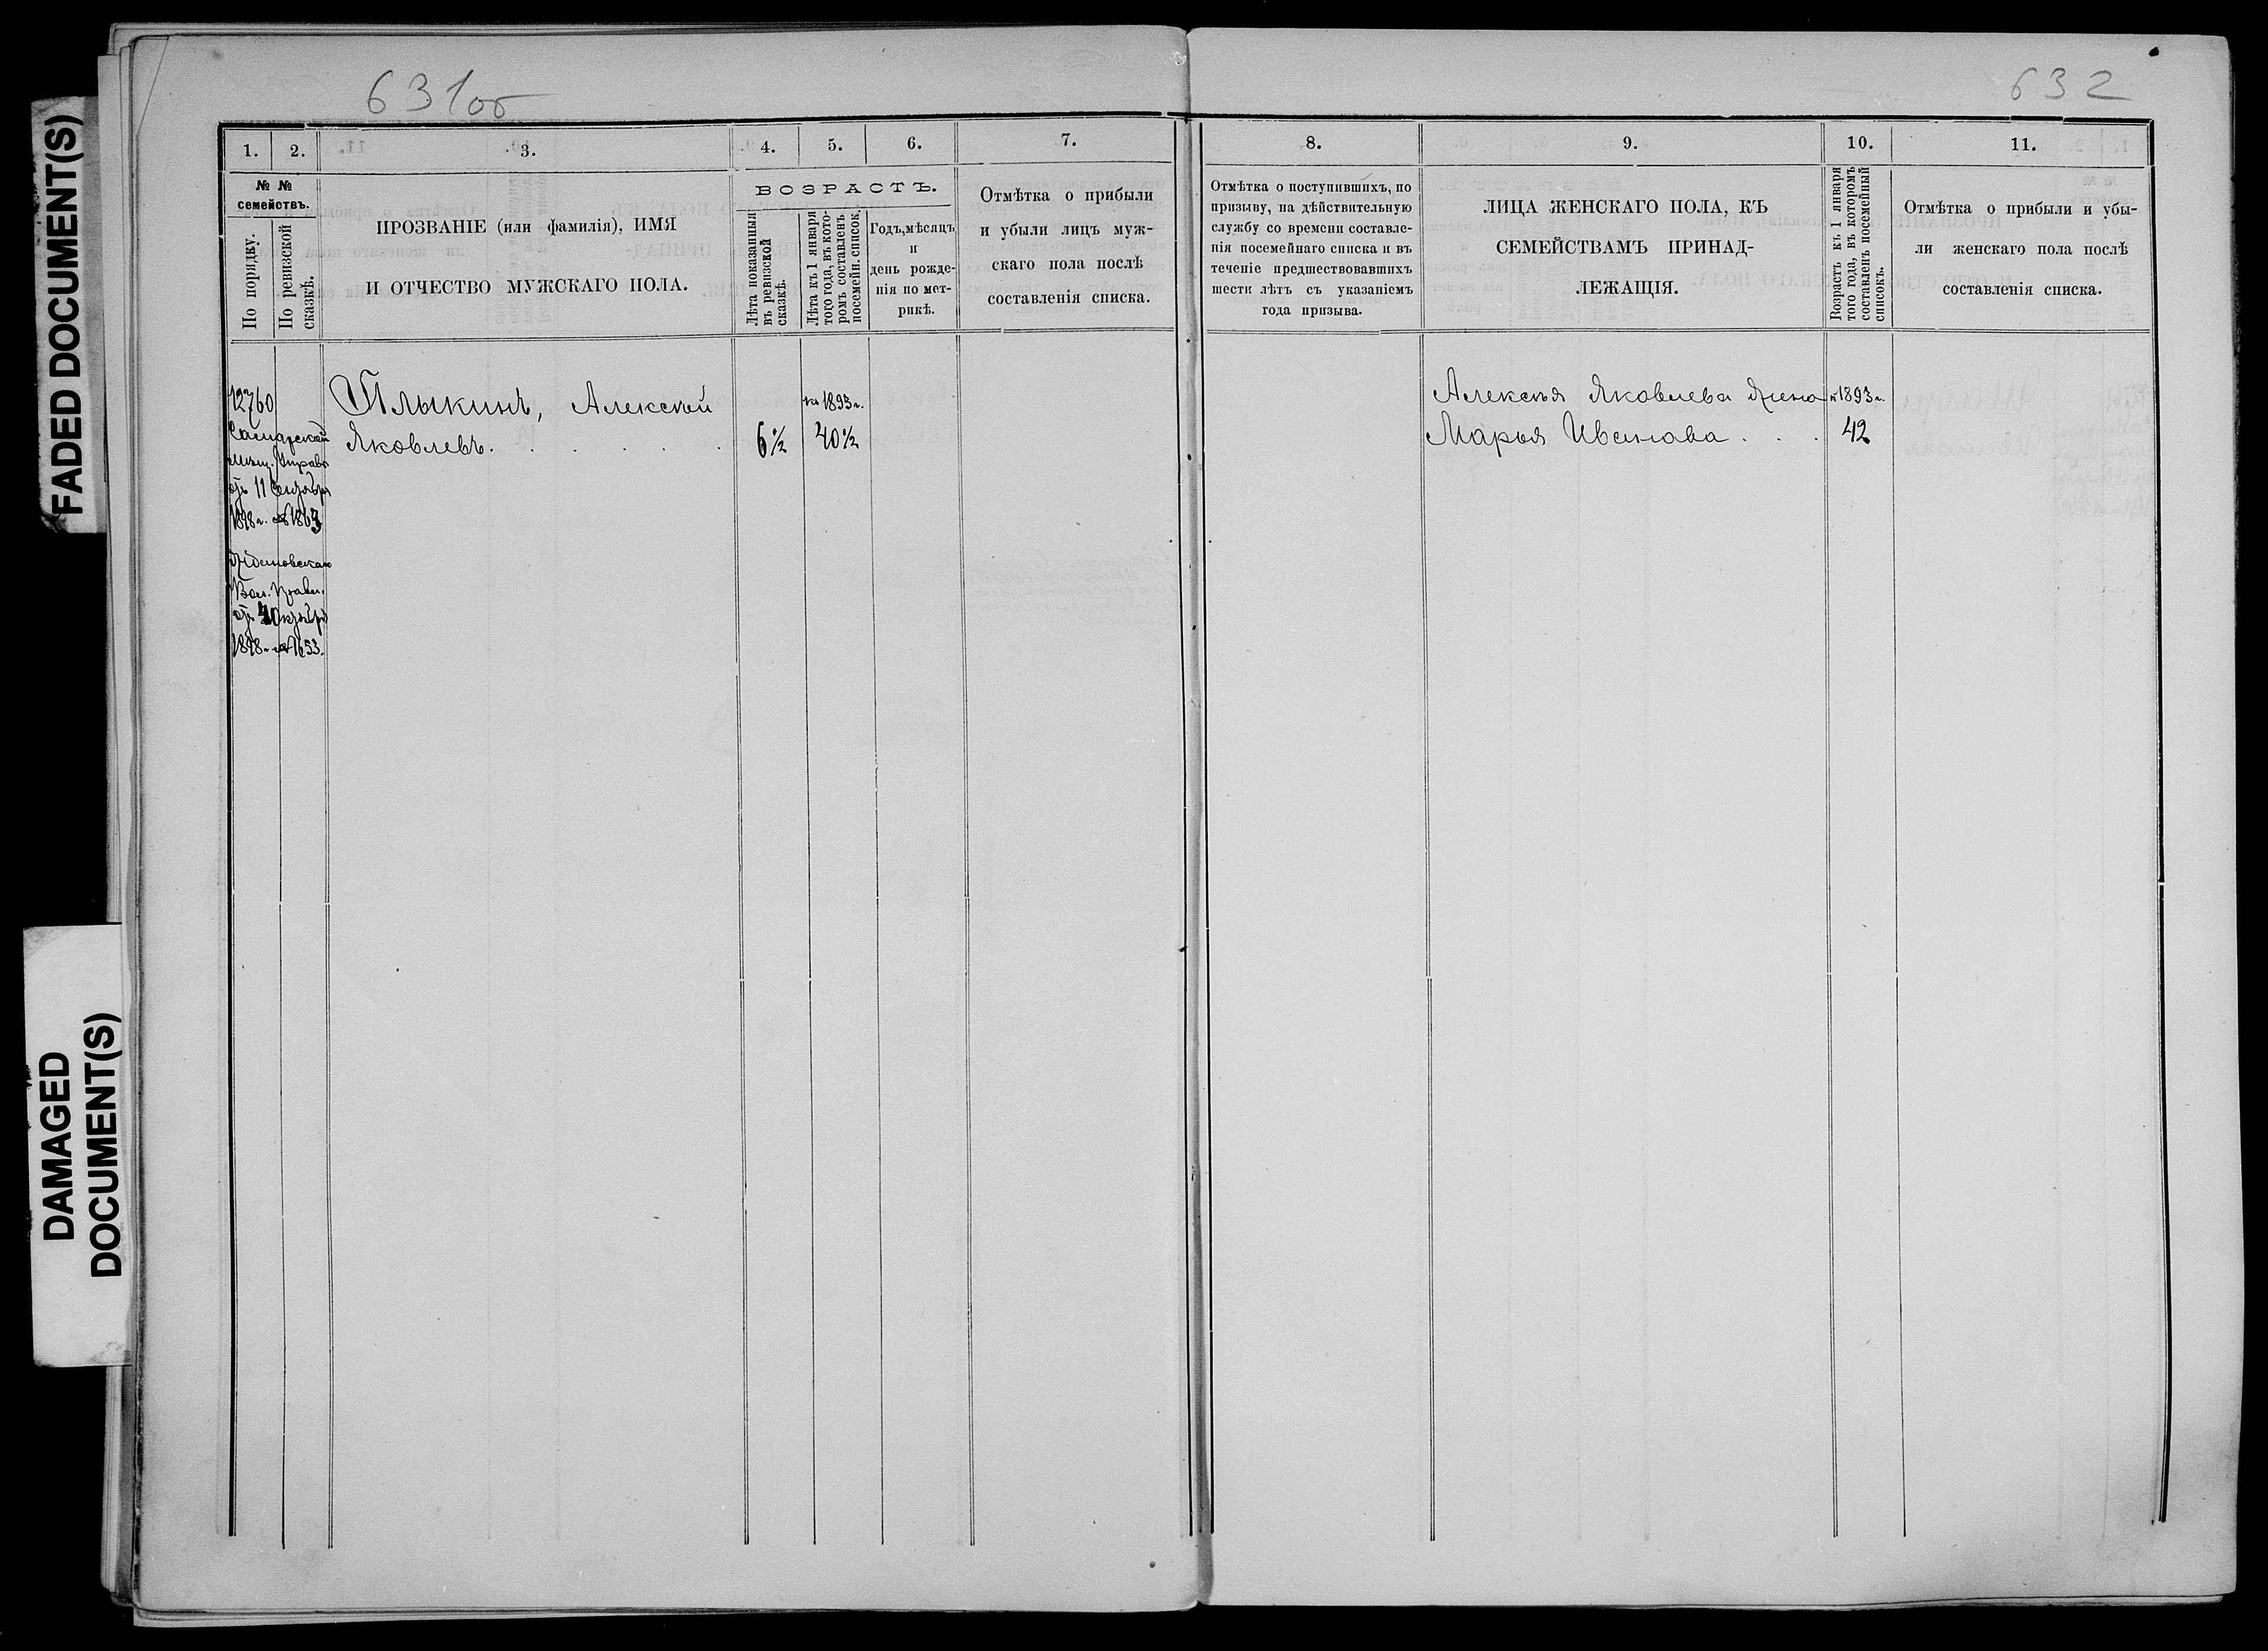 FADED DOCUMENT(S)
DAMAGED
DOCUMENT(S)
631об
1.
2.
3.
4.
5.
6.
7.
№ №
семействъ.
По порядку.
По ревизской
сказкѣ.
ПРОЗВАНІЕ (или фамилія), ИМЯ
И ОТЧЕСТВО МУЖСКАГО ПОЛА.
ВОЗРАСТЪ.
Лѣта показанныя
въ ревизской
сказкѣ.
Лѣта къ 1 января
того года, въ кото-
ромъ составленъ
посемейн. список.
Годъ, мѣсяцъ
и
день рожде-
нія по мет-
рикѣ.
Отмѣтка о прибыли
и убыли лицъ муж-
скаго пола послѣ
составленія списка.
12760
Самарской
Мѣщ. Управы
отъ 11 Сентября
1898 г. № 1863
Вол. Правл.
Октября
1898 г. № 1653.
Плыкинъ, Алексѣй
Яковлевъ.
6½
къ 1893 г.
40½
632
8.
9.
10.
11.
Отмѣтка о поступившихъ, по
призыву, на дѣйствительную
службу со времени составле-
нія посемейнаго списка и въ
теченіе предшествовавшихъ
шести лѣтъ съ указаніемъ
года призыва.
ЛИЦА ЖЕНСКАГО ПОЛА, КЪ
СЕМЕЙСТВАМЪ ПРИНАД-
ЛЕЖАЩІЯ.
Возрастъ къ 1 января
того года, въ которомъ
составленъ посемейный
списокъ.
Отмѣтка о прибыли и убы-
ли женскаго пола послѣ
составленія списка.
Алексѣя Яковлева жена
Марья Иванова . . .
к 1893 г.
42